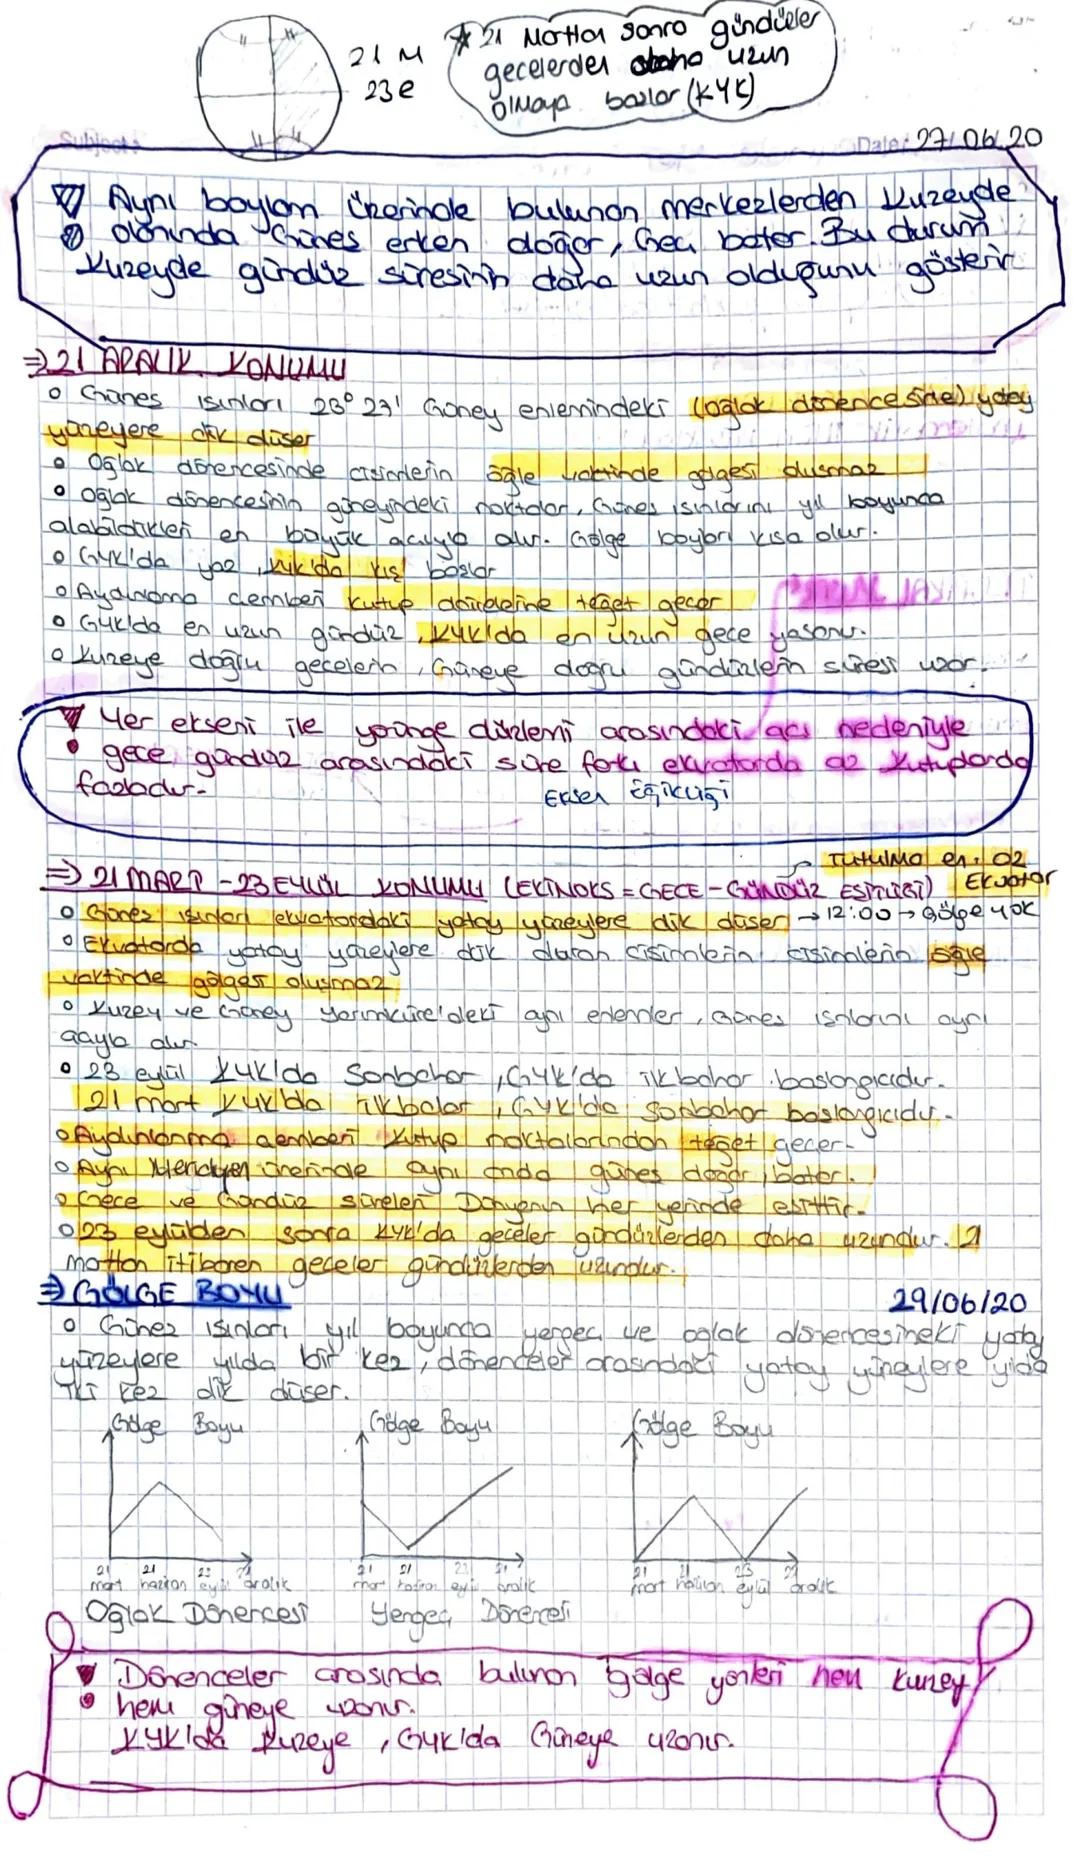 21 M
23 e
★ 21 Marttan sonra gündüzler
gecelerden daha uzun
olmaya başlar (KYK)
Subject:
Date: 27/06/20
Aynı boylam üzerinde bulunan merkezlerden Kuzeyde
olanında Güneş erken doğar, Geç batar. Bu durum
Kuzeyde gündüz süresinin daha uzun olduğunu gösterir
⇒ 21 ARALIK KONUMU
o Güneş ışınları 23° 27' Güney enlemindeki (oğlak dönencesinde) yatay
yüzeylere dik düşer
o Oğlak dönencesinde cisimlerin öğle vaktinde gölgesi oluşmaz
o Oğlak dönencesinin güneyindeki noktalar, Güneş ışınlarını yıl boyunca
alabildikleri en büyük açıyla alır. Gölge boyları kısa olur.
o GYK'da yaz, KYK'da kış başlar
o Aydınlanma çemberi kutup dairelerine teğet geçer
o GYK'da en uzun gündüz, KYK'da en uzun gece yaşanır.
o Kuzeye doğru gecelerin, Güneye doğru gündüzlerin süresi uzar.
Yer ekseni ile yörünge düzlemi arasındaki açı nedeniyle
gece gündüz arasındaki süre farkı ekvatorda az Kutuplarda
fazladır.
Eksen Eğikliği
Tutulma en. 02
Ekvator
⇒ 21 MART - 23 EYLÜL KONUMU (EKİNOKS = GECE - GÜNDÜZ EŞİTLİĞİ)
o Güneş ışınları ekvatordaki yatay yüzeylere dik düşer → 12:00 → Gölge yok
o Ekvatorda yatay yüzeylere dik duran cisimlerin cisimlerin öğle
vaktinde gölgesi oluşmaz
o Kuzey ve Güney yarımküre'deki aynı enlemler, Güneş ışınlarını aynı
açıyla alır.
o 23 eylül KYK'da Sonbahar, GYK'da ilkbahar başlangıcıdır.
21 mart KYK'da ilkbahar, GYK'da sonbahar başlangıcıdır.
o Aydınlanma çemberi Kutup noktalarından teğet geçer.
o Aynı Meridyen üzerinde aynı anda güneş doğar, batar.
o Gece ve Gündüz süreleri Dünyanın her yerinde eşittir.
o 23 eylülden sonra KYK'da geceler gündüzlerden daha uzundur. 21
marttan itibaren geceler gündüzlerden uzundur.
⇒ GÖLGE BOYU
29/06/20
o Güneş ışınları yıl boyunca yengeç ve oğlak dönencesineki yatay
yüzeylere yılda bir kez, dönenceler arasındaki yatay yüzeylere yılda
iki kez dik düşer.
Gölge Boyu Gölge Boyu Gölge Boyu
21 21 23 21 21 21 23 21 21 21 23 21
mart haziran eylül aralık mart haziran eylül aralık mart haziran eylül aralık
Oğlak Dönencesi Yengeç Dönencesi
Dönenceler arasında bulunan gölge yönleri hem kuzey
hem güneye uzanır.
KYK'da Kuzeye, GYK'da Güneye uzanır.